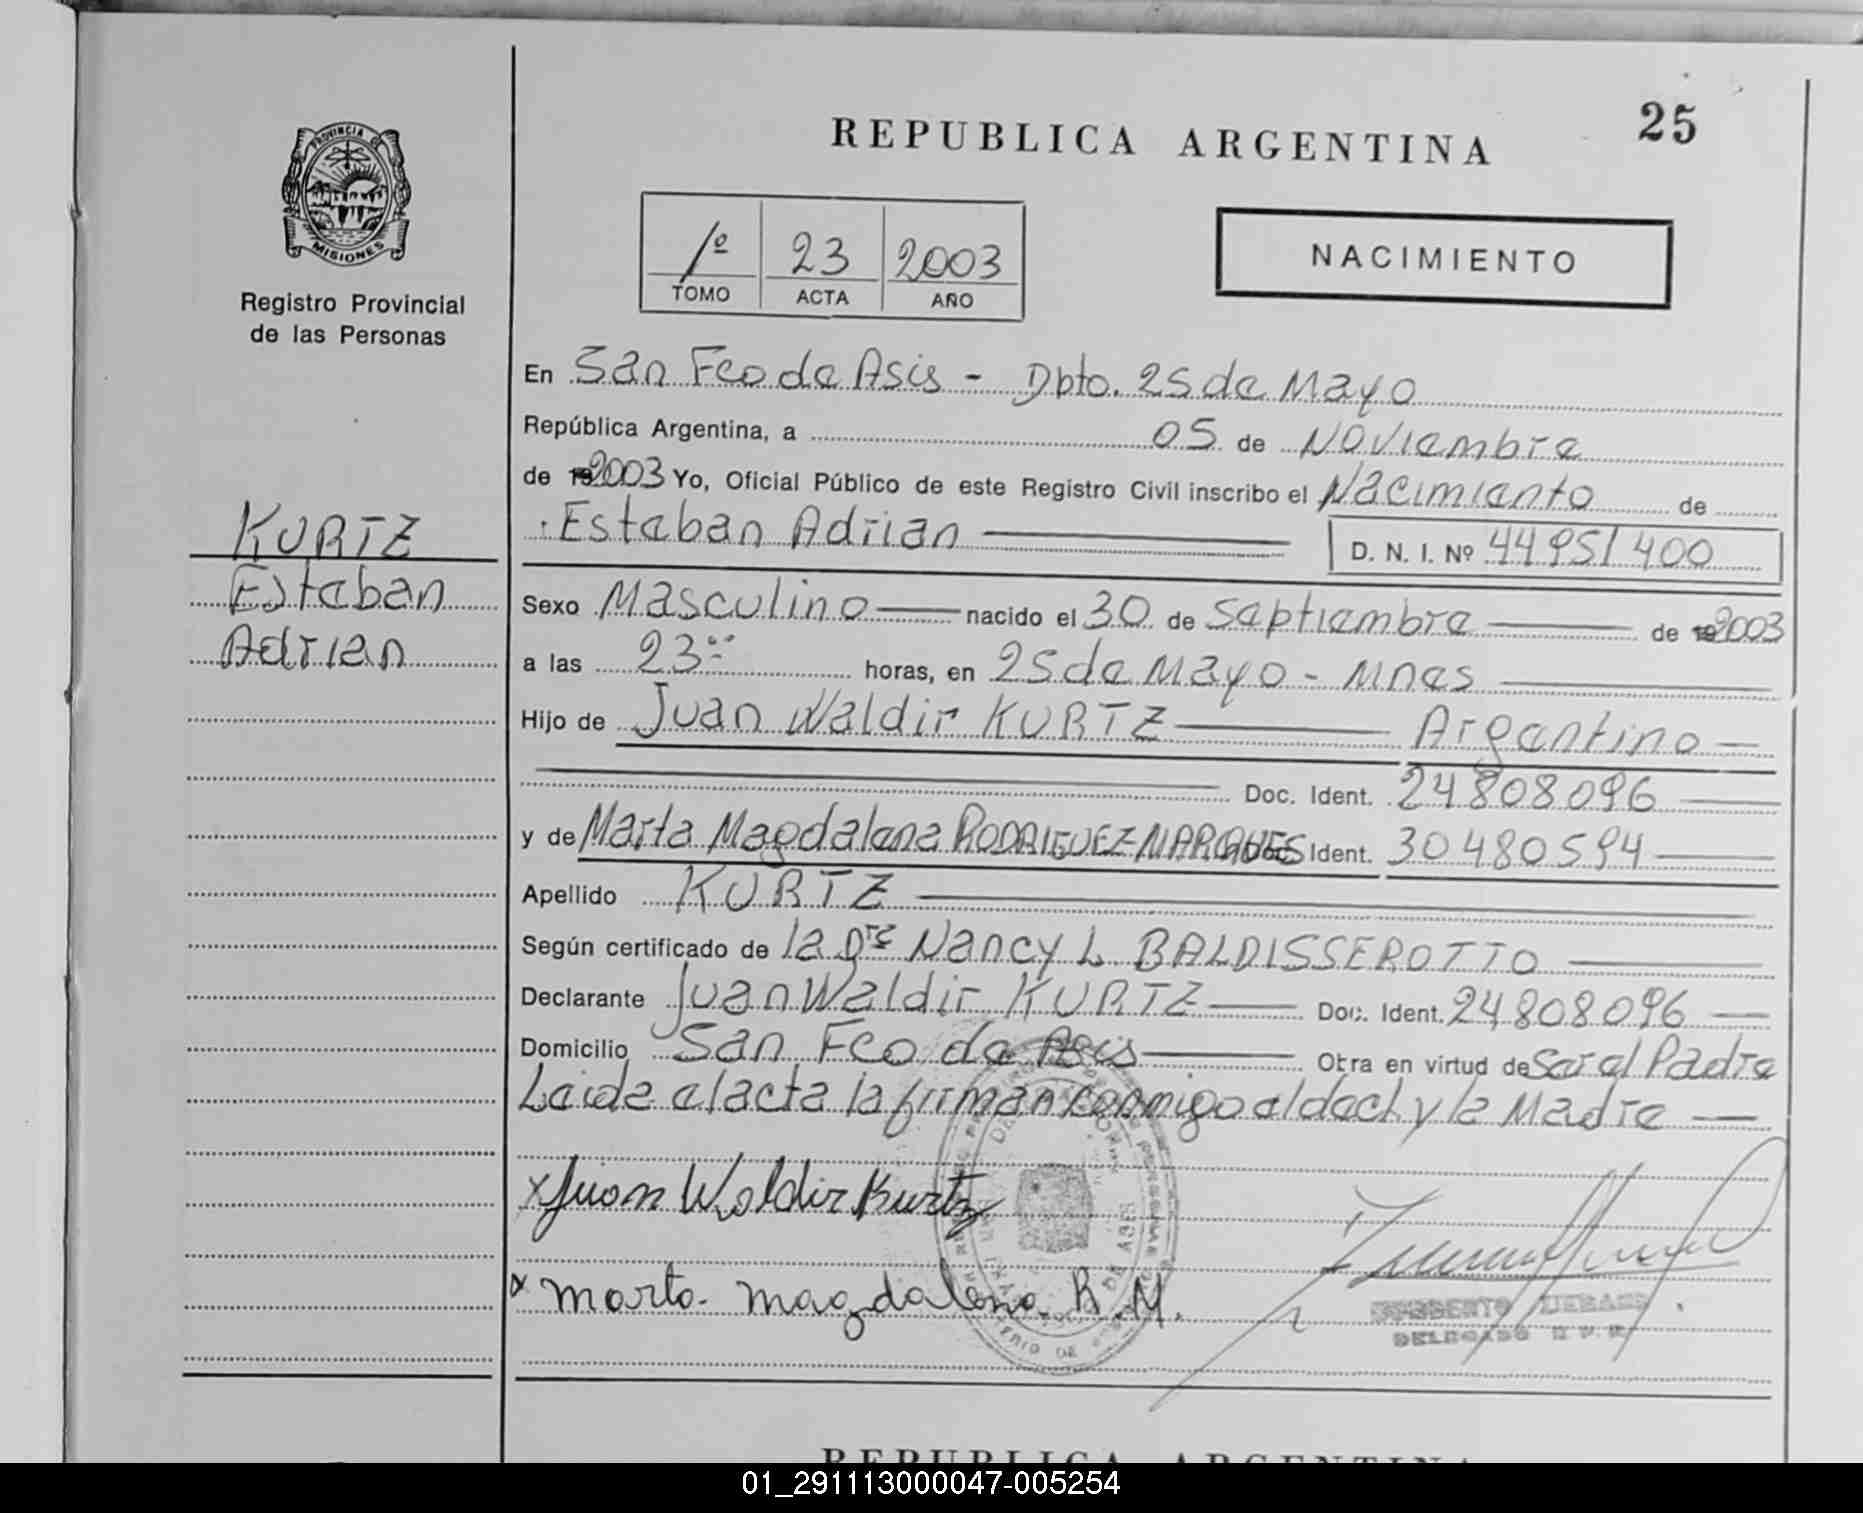 REPUBLICA ARGENTINA
25
PROVINCIA DE
MISIONES
Registro Provincial
de las Personas
1º 23 2003
TOMO ACTA AÑO
NACIMIENTO
En San Fco de Asis - Dpto. 25 de Mayo
República Argentina, a 05 de Noviembre
de 2003 Yo, Oficial Público de este Registro Civil inscribo el Nacimiento de
Esteban Adrian D. N. I. Nº 44951400
KURTZ
Esteban
Adrian
Sexo Masculino nacido el 30 de Septiembre de 2003
a las 23 horas, en 25 de Mayo - Mnes
Hijo de Juan Waldir KURTZ Argentino
Doc. Ident. 24808096
y de Marta Magdalena RODRIGUEZ MARQUES Ident. 30480594
Apellido KURTZ
Según certificado de la Dra Nancy L. BALDISSEROTTO
Declarante Juan Waldir KURTZ Doc. Ident. 24808096
Domicilio San Fco de Asis Otra en virtud de Ser el Padre
Leida el acta la firman conmigo el decl. y la Madre
x Juan Waldir Kurtz
x Marta Magdalena R. M.
DELEGADO R. P. P.
REPUBLICA ARGENTINA
01_291113000047-005254